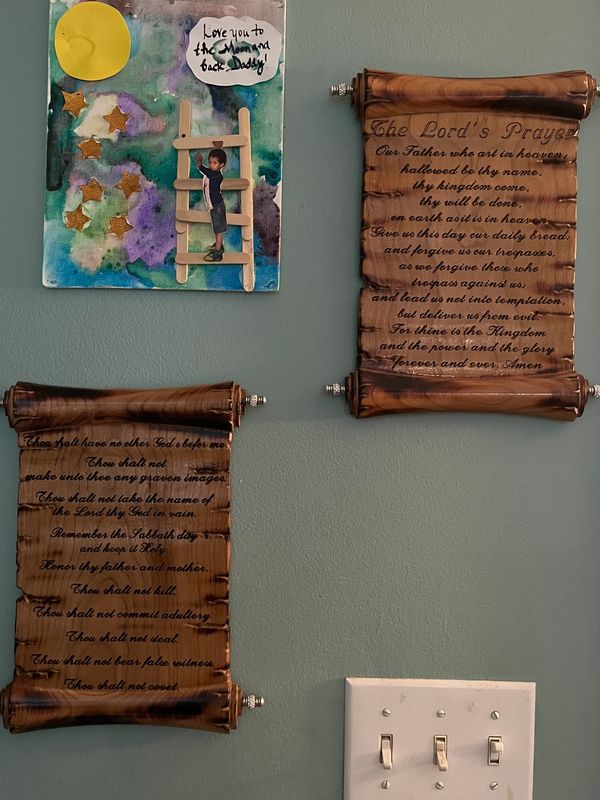 Love you to
the Moon and
back Daddy!
The Lord's Prayer
Our Father who art in heaven,
hallowed be thy name,
thy kingdom come,
thy will be done,
on earth as it is in heaven.
Give us this day our daily bread,
and forgive us our trespasses,
as we forgive those who
trespass against us;
and lead us not into temptation,
but deliver us from evil.
For thine is the Kingdom
and the power and the glory
forever and ever. Amen
Thou shalt have no other God's befor me.
Thou shalt not
make unto thee any graven images.
Thou shalt not take the name of
the Lord thy God in vain.
Remember the Sabbath day
and keep it Holy.
Honor thy father and mother.
Thou shalt not kill.
Thou shalt not commit adultery.
Thou shalt not steal.
Thou shalt not bear false witness.
Thou shalt not covet.